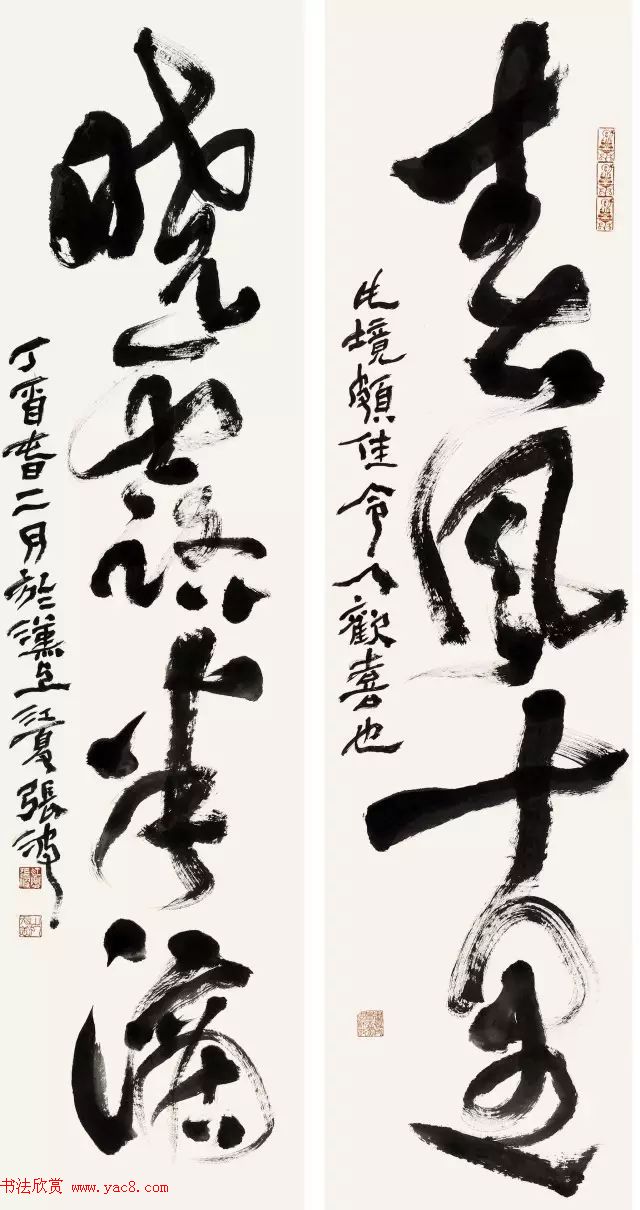 春風十里
此境頗佳令人歡喜也
曉露半滴
丁酉春二月於漢上江夏張波
书法欣赏 www.yac8.com